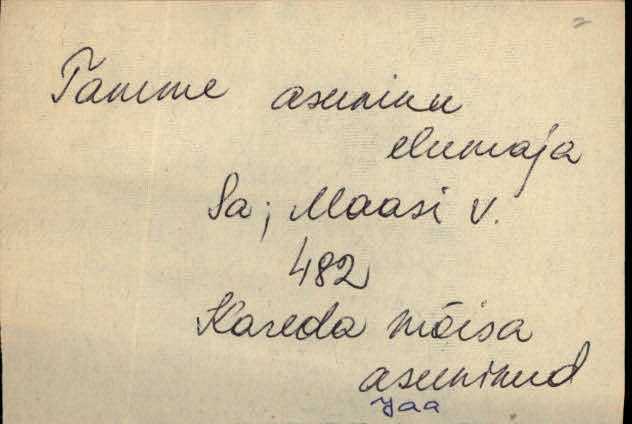 Tamme asuniku
elumaja
Sa; Maasi v.
482
Kareda mõisa
asunikud
Jaa